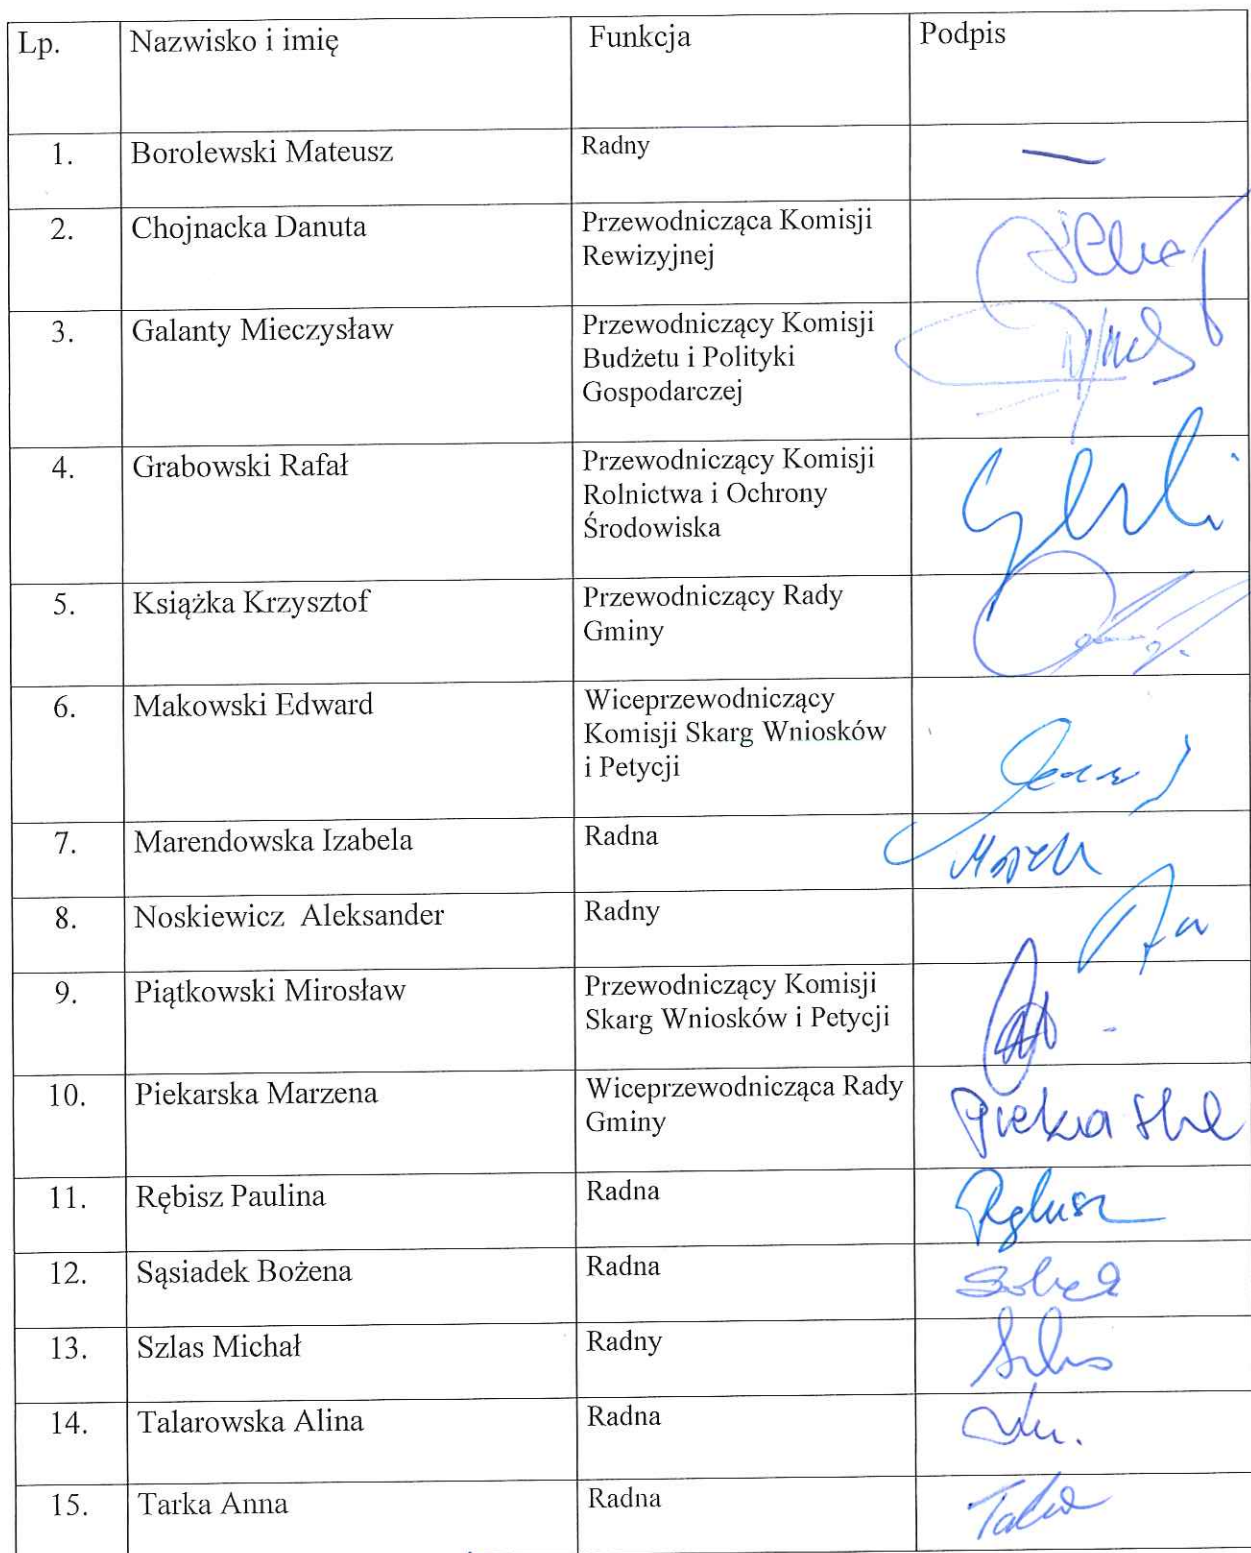 Lp. Nazwisko i imię Funkcja Podpis
1. Borolewski Mateusz Radny —
2. Chojnacka Danuta Przewodnicząca Komisji
Rewizyjnej
3. Galanty Mieczysław Przewodniczący Komisji
Budżetu i Polityki
Gospodarczej
4. Grabowski Rafał Przewodniczący Komisji
Rolnictwa i Ochrony
Środowiska
5. Książka Krzysztof Przewodniczący Rady
Gminy
6. Makowski Edward Wiceprzewodniczący
Komisji Skarg Wniosków
i Petycji
7. Marendowska Izabela Radna
8. Noskiewicz Aleksander Radny
9. Piątkowski Mirosław Przewodniczący Komisji
Skarg Wniosków i Petycji
10. Piekarska Marzena Wiceprzewodnicząca Rady
Gminy
11. Rębisz Paulina Radna
12. Sąsiadek Bożena Radna
13. Szlas Michał Radny
14. Talarowska Alina Radna
15. Tarka Anna Radna